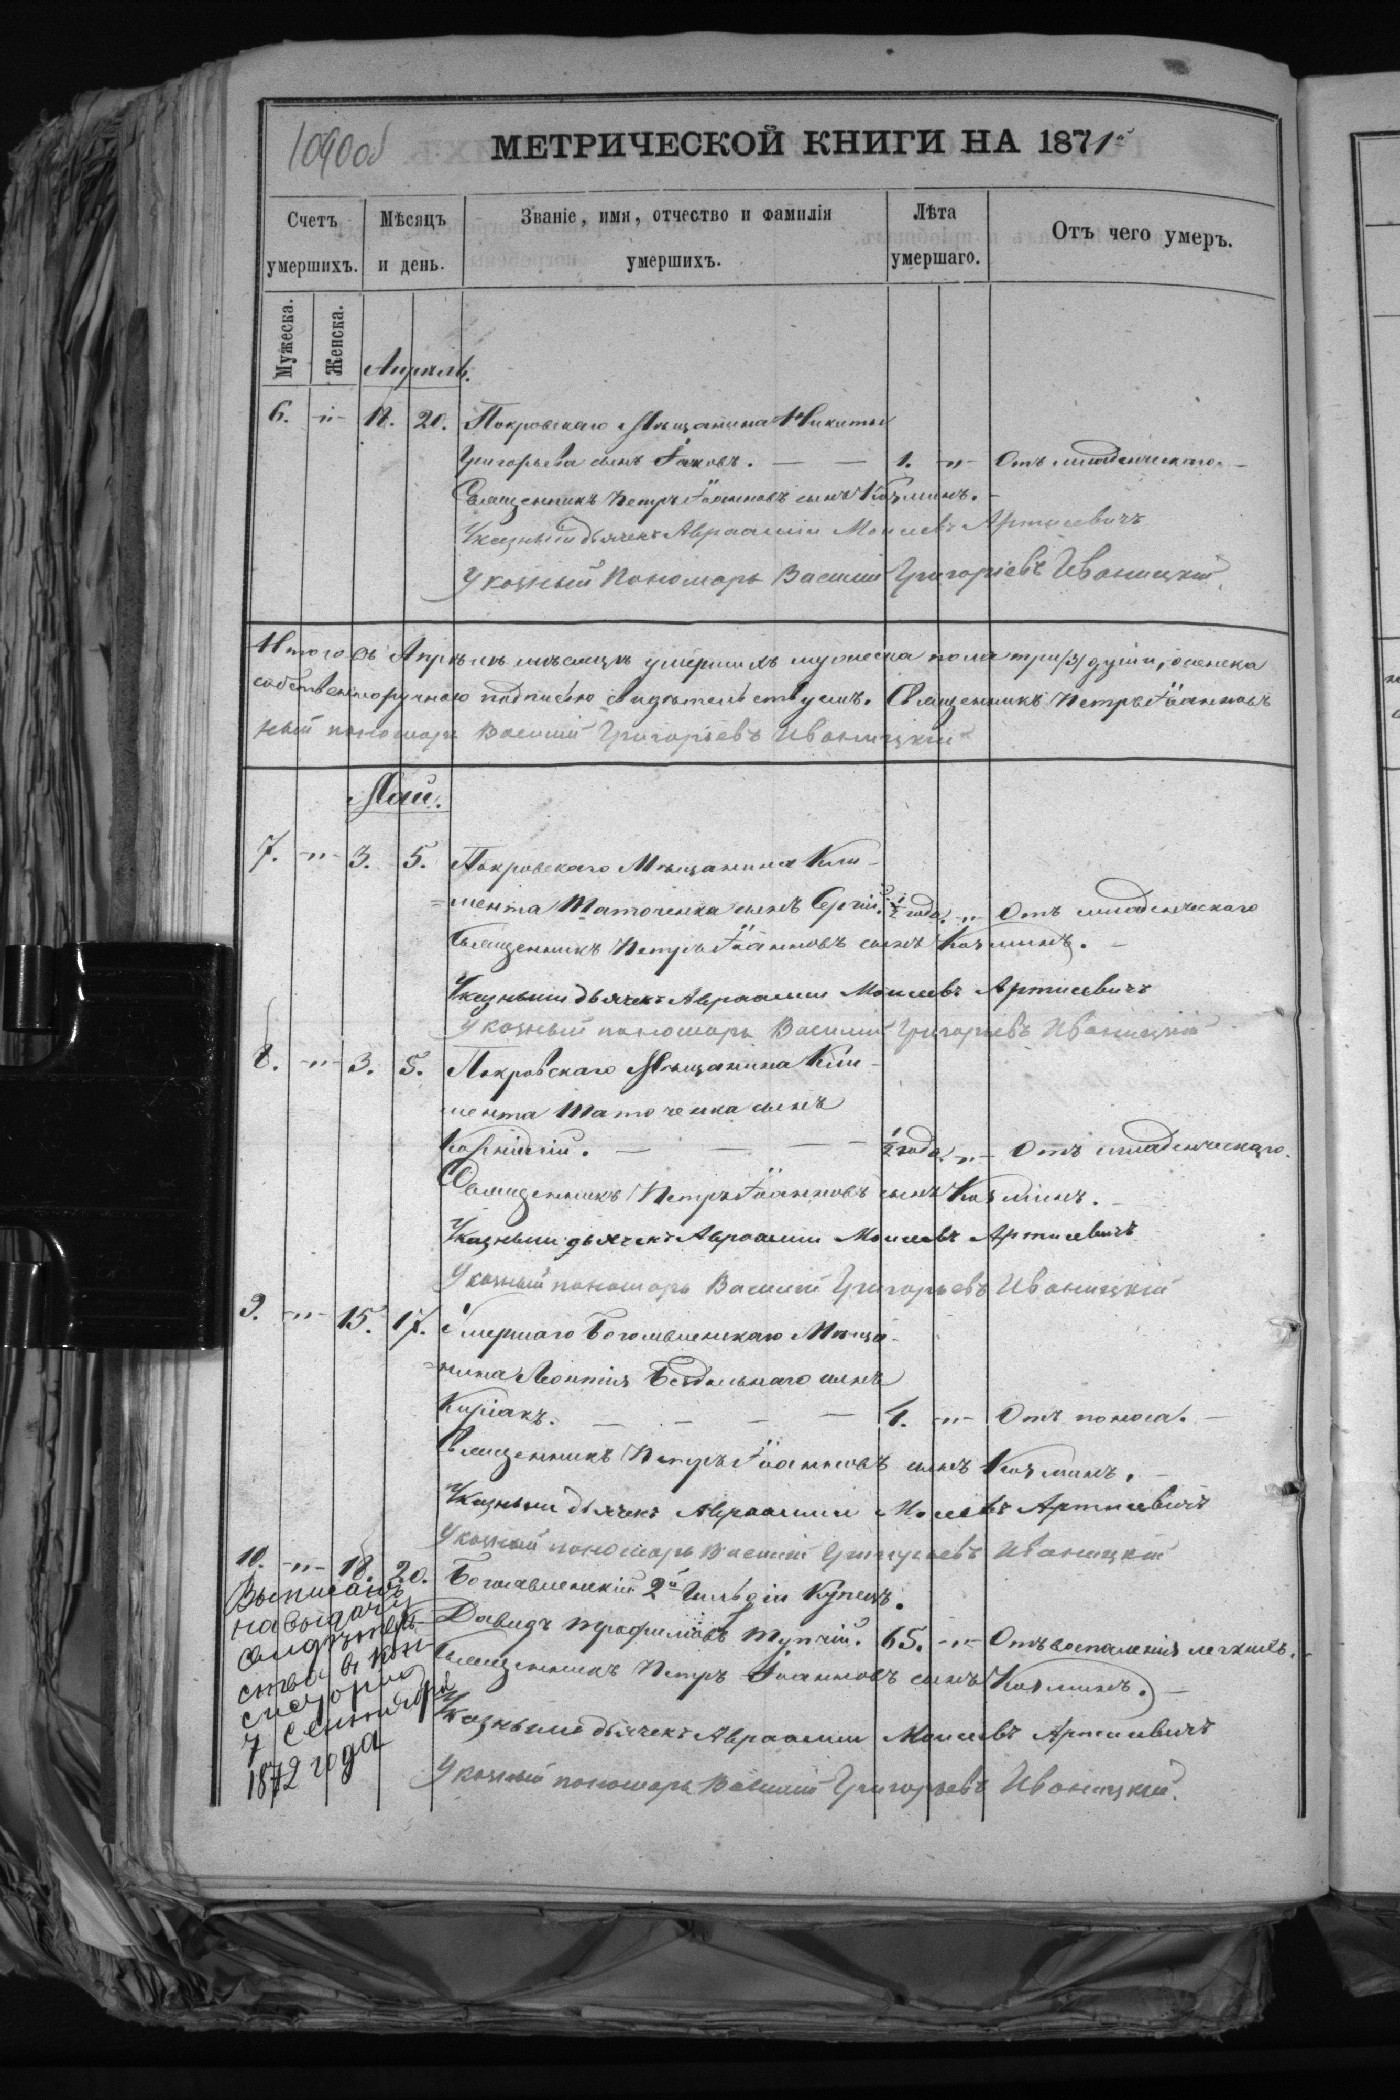 1090об
МЕТРИЧЕСКОЙ КНИГИ НА 1871й
Счетъ умершихъ.
Мѣсяцъ и день.
Званіе, имя, отчество и фамилія умершихъ.
Лѣта умершаго.
Отъ чего умеръ.
Мужеска.
Женска.
Апрѣль.
6. -"- 18. 20. Покровскаго Мѣщанина Никиты
Григорьева сынъ Іаковъ. — — 1. -"- Отъ младенческаго. —
Священникъ Петръ Іоанновъ сынъ Козминъ. —
Указный дьячекъ Авраамій Моисеевъ Артисевичъ
Указный Пономарь Василий Григоріевъ Иваницкій.
Итого въ Апрѣлѣ мѣсяцѣ умершихъ мужеска пола три /3/ души, женска
собственноручною подписью свидѣтельствуемъ. Священникъ Петръ Іоанновъ
ный пономарь Василий Григорьевъ Иваницкій
Май.
7. -"- 3. 5. Покровскаго Мѣщанина Кли-
=мента Таточенка сынъ Сергій. ½ года. -"- Отъ младенческаго
Священникъ Петръ Іоанновъ сынъ Козминъ. —
Указный дьячекъ Авраамий Моисеевъ Артисевичъ
Указный пономарь Василий Григорьевъ Иваницкій
8. -"- 3. 5. Покровскаго Мѣщанина Кли-
мента Таточенка сынъ
Корнилій. — — — ½ года. -"- Отъ младенческаго.
Священникъ Петръ Іоанновъ сынъ Козминъ. —
Указный дьячекъ Авраамий Моисеевъ Артисевичъ
Указный пономарь Василий Григорьевъ Иваницкій
9. -"- 15. 17. Умершаго Богоявленскаго Мѣща-
=нина Леонтія Бездольнаго сынъ
Киріакъ. — — — — 4. -"- Отъ поноса. —
Священникъ Петръ Іоанновъ сынъ Козминъ. —
Указный дьячекъ Авраамий Моисеевъ Артисевичъ
Указный пономарь Василий Григорьевъ Иваницкій
10. -"- 18. 20. Богоявленскій 2й Гильдіи Купецъ.
Давидъ Трофимовъ Тупчій. 65. -"- Отъ воспаленія легкихъ. —
Священникъ Петръ Іоанновъ сынъ Козминъ. —
Указный дьячекъ Авраамий Моисеевъ Артисевичъ
Указный пономарь Василий Григорьевъ Иваницкій.
Выписанъ
на выдачу
свидѣтель-
ства въ Кон-
систорію
7 сентября
1872 года